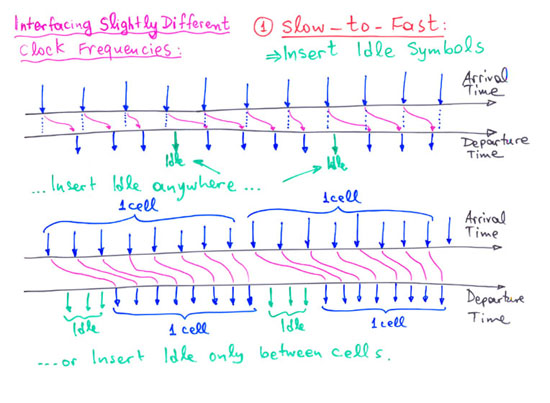 Interfacing Slightly Different
Clock Frequencies:
① Slow-to-Fast:
⇒ Insert Idle Symbols
Arrival
Time
Departure
Time
Idle
Idle
...Insert Idle anywhere ...
1 cell
1 cell
Arrival
Time
Departure
Time
Idle
1 cell
Idle
1 cell
....or Insert Idle only between cells.